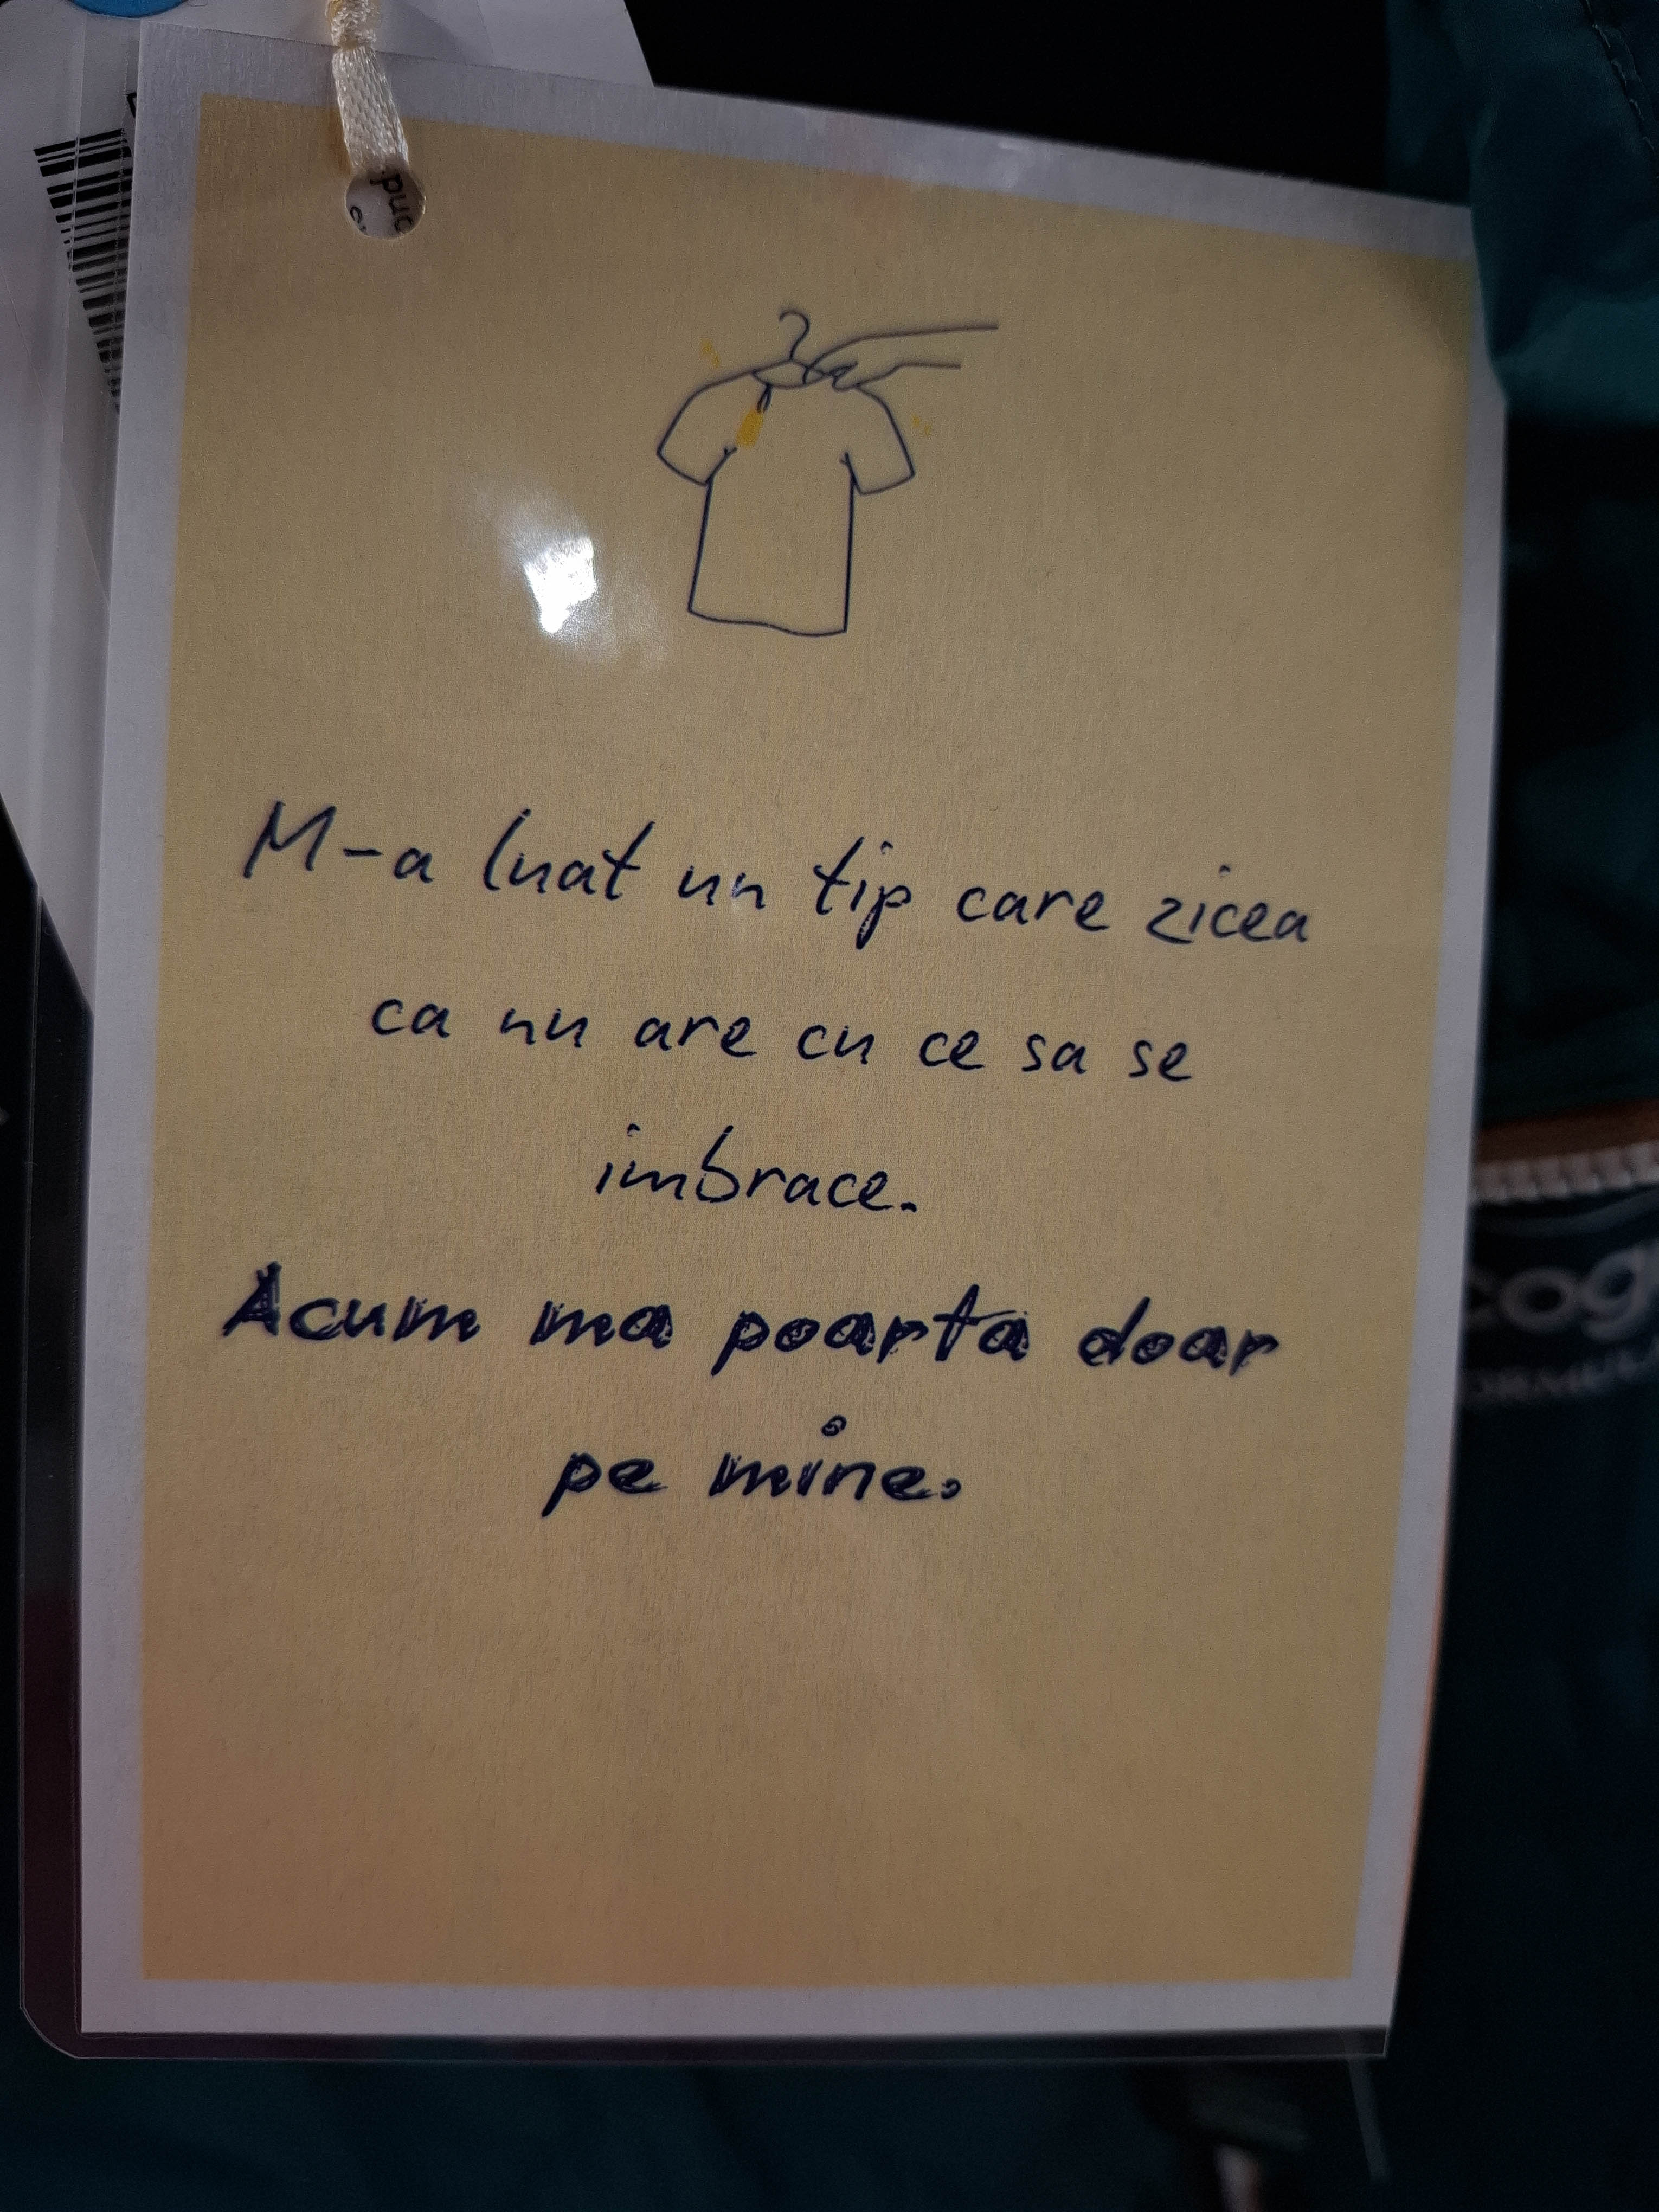 M-a luat un tip care zicea
ca nu are cu ce sa se
imbrace.
Acum ma poarta doar
pe mine.
cog